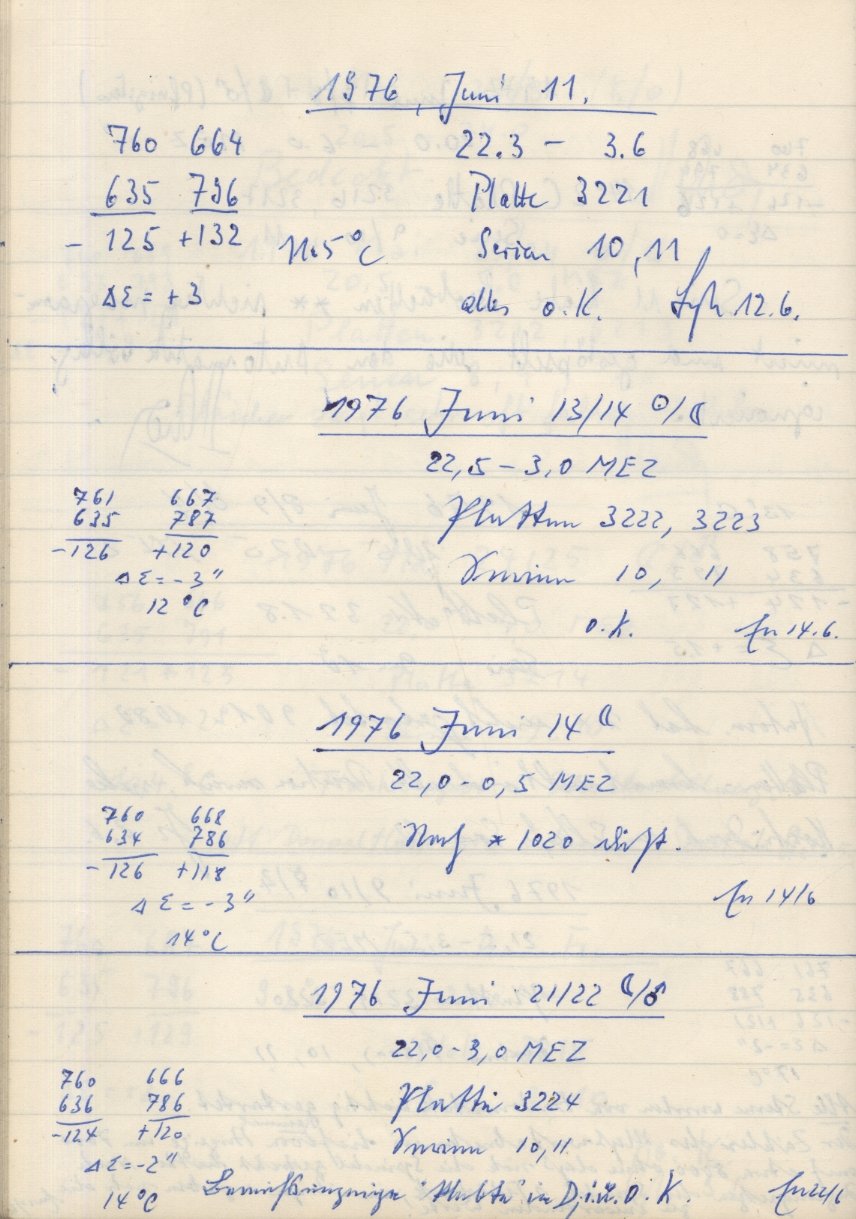 1976, Juni 11.
760 664 22.3 - 3.6
635 796 Platte 3221
- 125 +132 11.5 °C Serien 10, 11
ΔΣ = +3 alles o.K. 12.6.
1976 Juni 13/14 ☉/☾
22,5 - 3,0 MEZ
761 667
635 787 Platten 3222, 3223
-126 +120
ΔΣ = -3" Serien 10, 11
12 °C
o.K. 14.6.
1976 Juni 14 ☾
22,0 - 0,5 MEZ
760 668
634 786 Nach * 1020
-126 +118
ΔΣ = -3" 14/6
14 °C
1976 Juni 21/22 ☾/♂
22,0 - 3,0 MEZ
760 666
636 786 Platte 3224
-124 +120
ΔΣ = -2" Serien 10, 11
14 °C O.K. 22/6